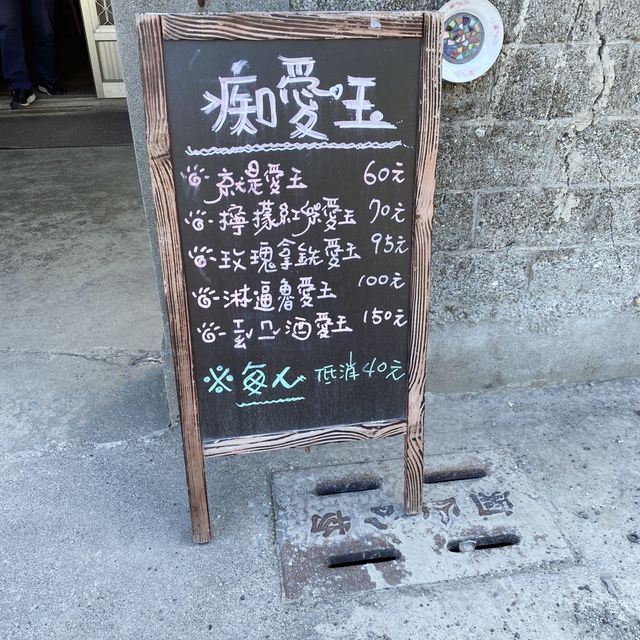 痴愛玉
就是愛玉 60元
檸檬紅茶愛玉 70元
玫瑰拿銑愛玉 95元
淋逼魯愛玉 100元
酒愛玉 150元
※每人 低消40元